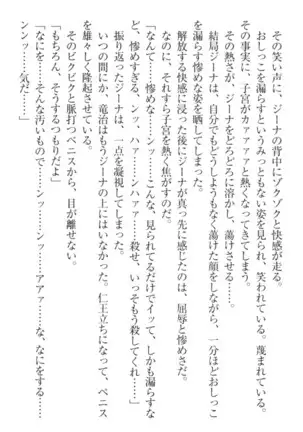 その笑い声に、ジーナの背中にゾクゾクと快感が走る。
おしっこを漏らすというみっともない姿を見られ、笑われている。蔑まれている。
その事実に、子宮がカァァァァと熱くなってきてしまう。
その熱さが、ジーナをどろどろに溶かし、蕩けさせる……。
結局ジーナは、自分でもどうしようもなく蕩けた顔をしながら、一分ほどおしっこ
を漏らす惨めな姿を晒してしまった。
解放する快感に浸った後にジーナが真っ先に感じたのは、屈辱と惨めさだ。
なのに、それすら子宮を熱く焦がすのだ。
「なんて……惨めな……ンッ……こんな、見られてるだけでイッて、しかも漏らすな
ど、惨めすぎる、ンッ、ハァ……ンハァァ……殺せ、いっそもう殺してくれ……」
振り返ったジーナは、一点を凝視してしまった。
いつの間にか、竜治はもうジーナの上にはいなかった。仁王立ちになって、ペニス
を雄々しく隆起させている。
そのビクビクと脈打つペニスから、目が離せない。
「もちろん、そうするつもりだよ」
「なにを……そんな汚いもので……ンッ……ンッ……アァァ……な、なにをする……
ンンッ……気だ……」